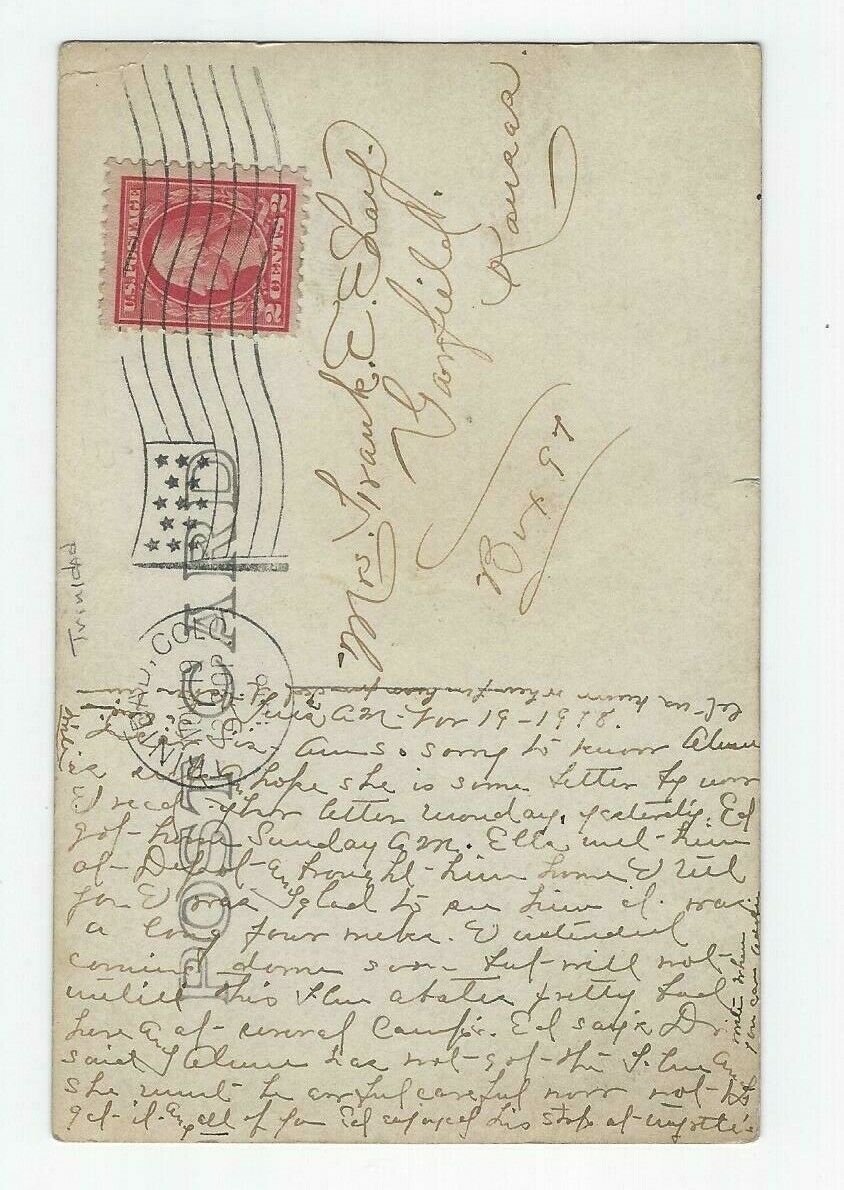 U.S. POSTAGE
2 CENTS 2
TRINIDAD, COLO.
NOV 19
POST CARD
Trinidad
Mrs. Frank. E. Eday.
Garfield.
Kansas
Box 97
let us know when
Tues A.M. Nov 19-1918.
Dear Sis. Am so sorry to know Alma
is sick hope she is some better by now
I recd your letter monday, yesterdy. Ed
got home Sunday A.M. Ella met him
at Depot an brought him home I tell
you I was glad to see him it was
a long four weeks. I intended
coming down soon but will not
untill this flue abates pretty bad
here an at several Camps. Ed says Dr
said Alma has not got the flue An
she must be awful careful now not to
get it. an all of you Ed enjoyed his stop at
write when
you can